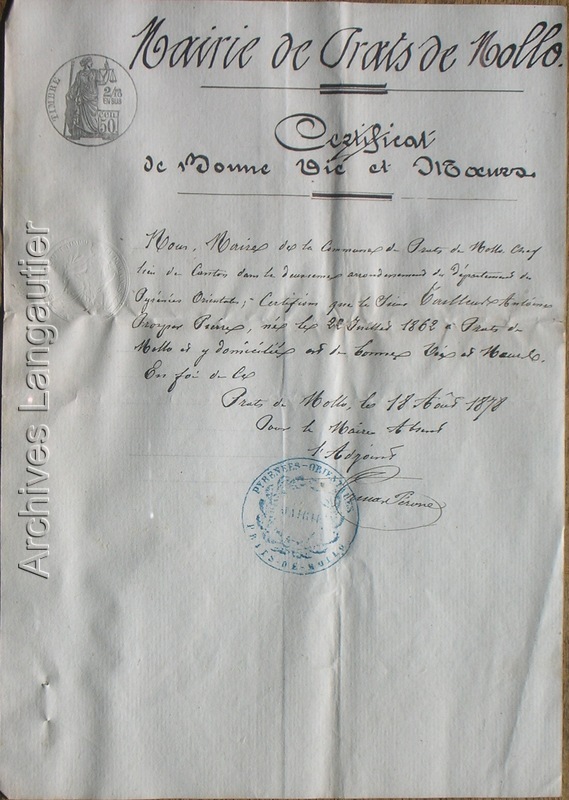 Mairie de Prats de Mollo.
TIMBRE
2/10
EN SUS
50c
Certificat
de Bonne Vie et Mœurs
Nous, Maire de la Commune de Prats de Mollo Chef
lieu de Canton dans le deuxième arrondissement du département des
Pyrénées Orientales, Certifions que le Sieur Antoine
Prosper Pierre, né le 22 Juillet 1862 à Prats de
Mollo et y domicilié est de bonnes Vie et Mœurs.
En foi de Ce
Prats de Mollo, le 18 Août 1878
Pour le Maire Absent
l'Adjoint
PYRÉNÉES-ORIENTALES
MAIRIE
PRATS-DE-MOLLO
Archives Langautier